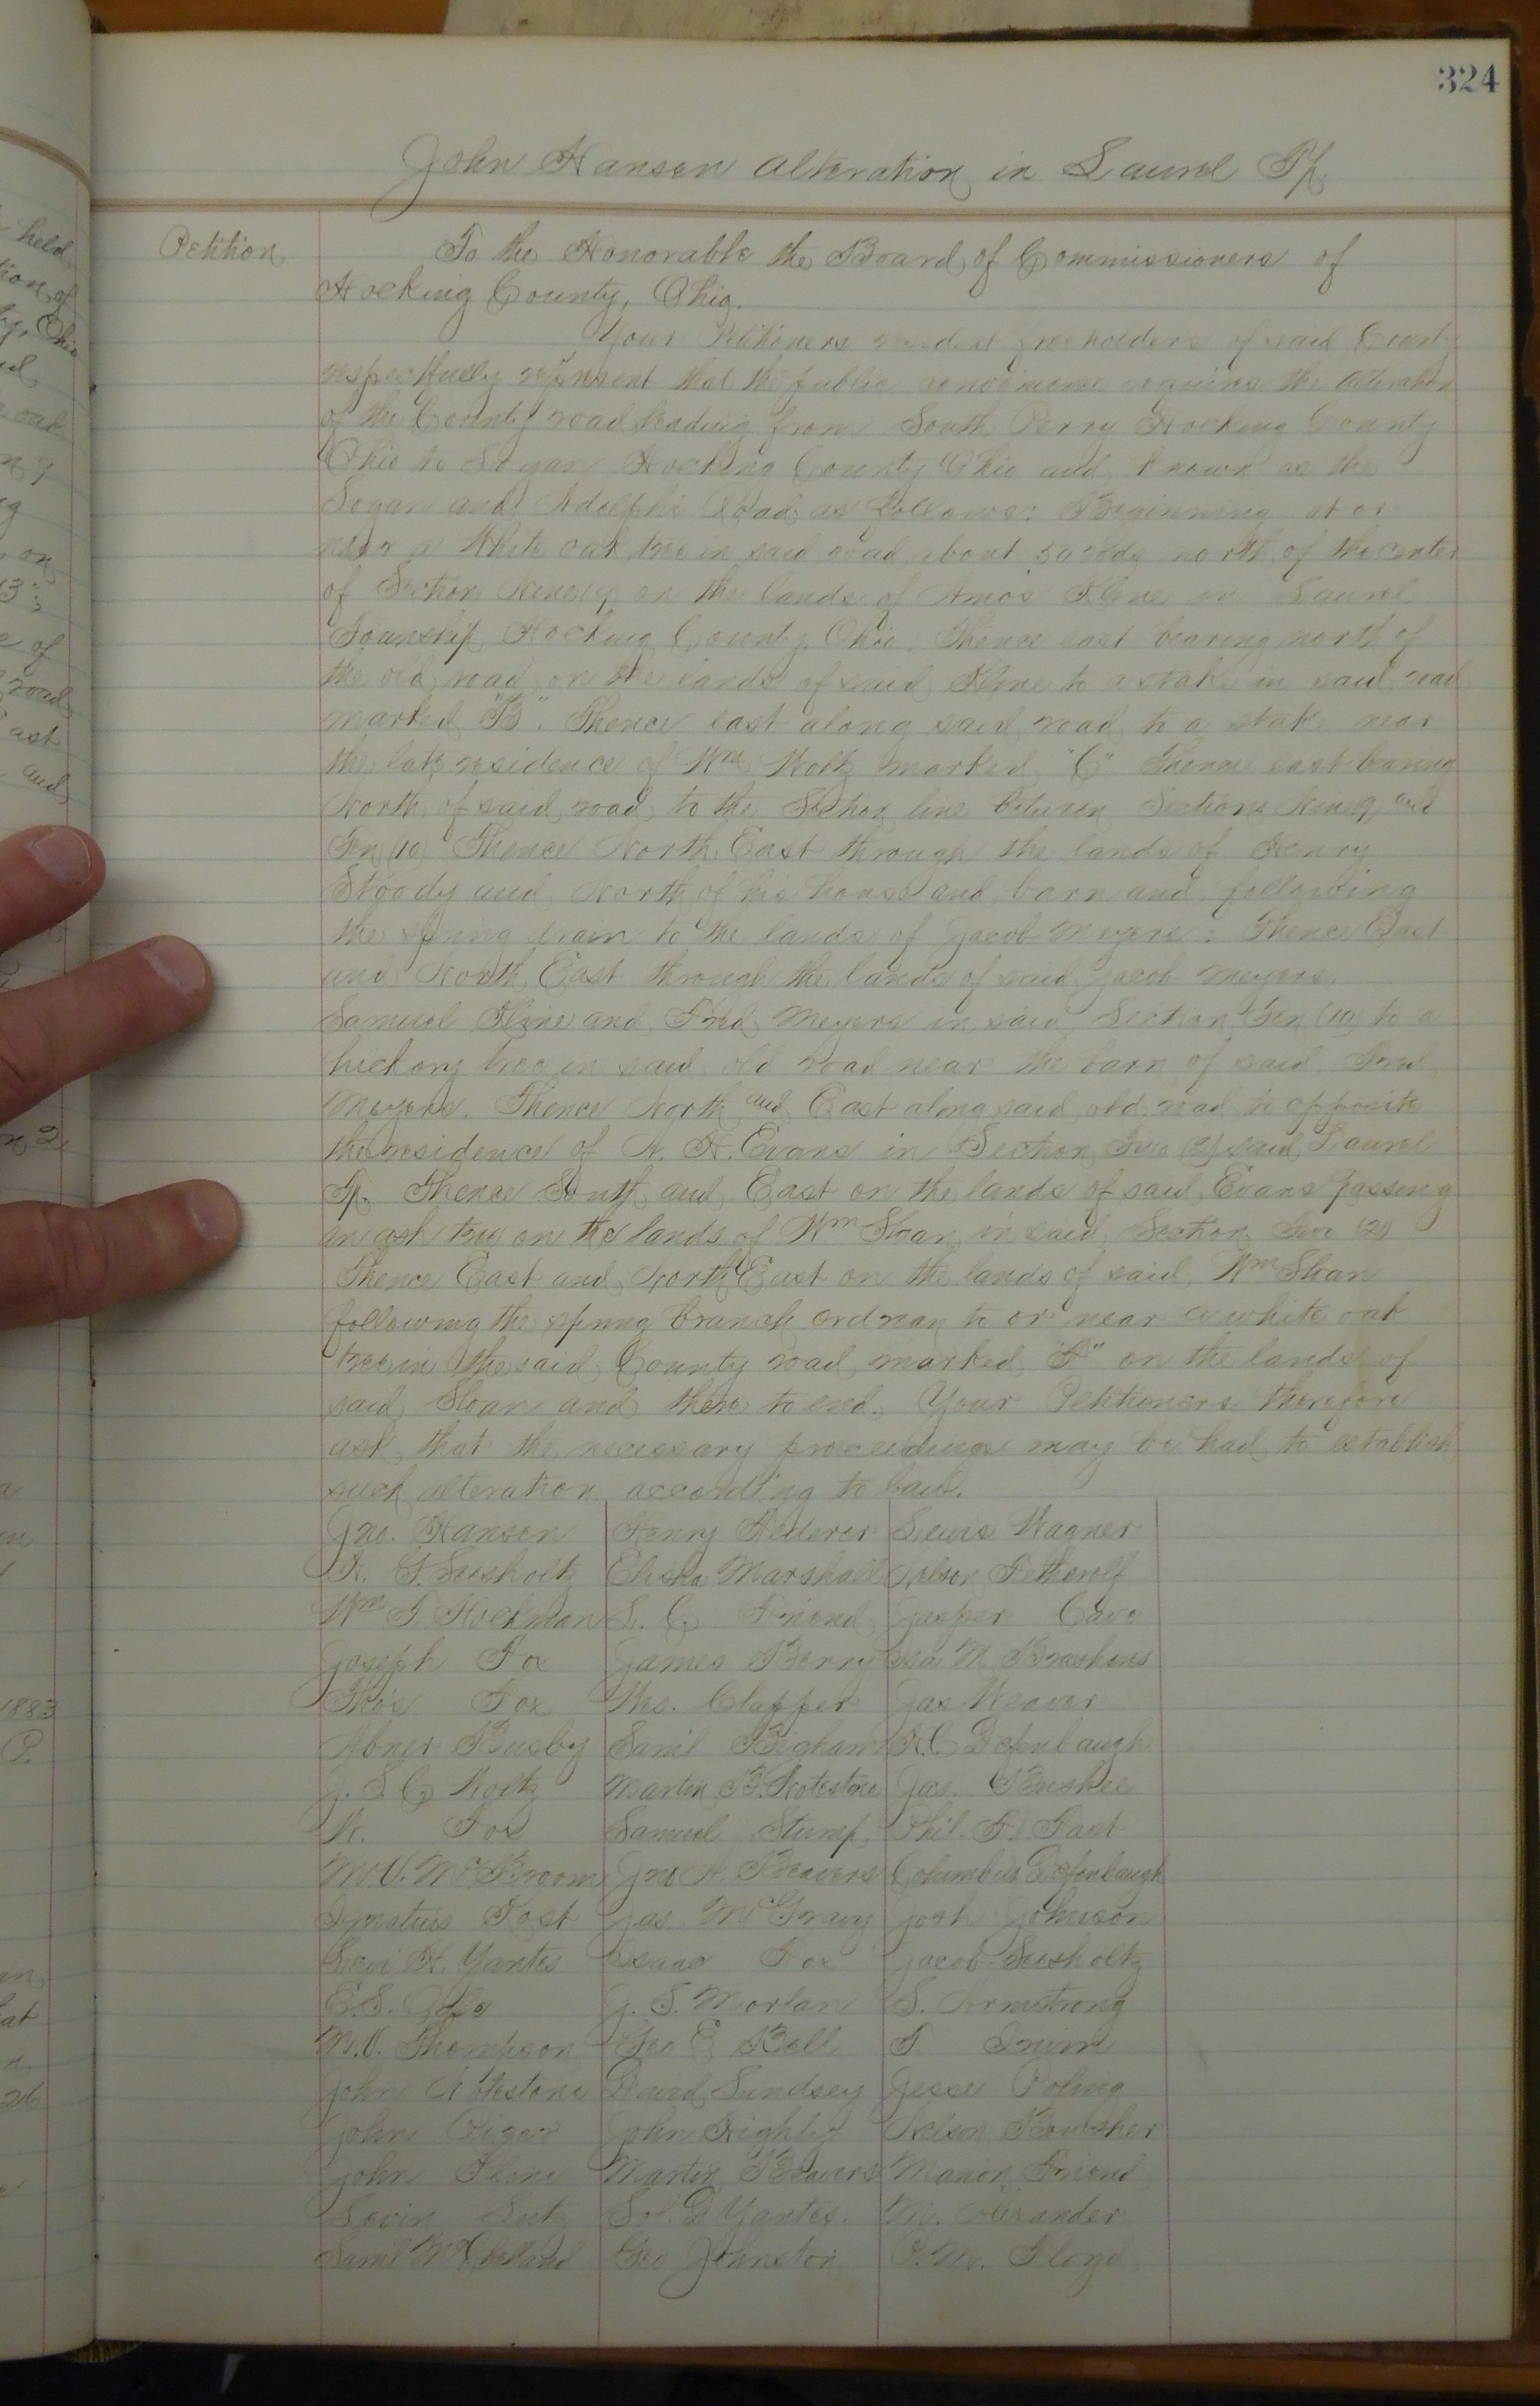 324
John Hansen alteration in Laurel Tp
Petition
To the Honorable the Board of Commissioners of
Hocking County, Ohio.
Your Petitioners resident freeholders of said County
respectfully represent that the public convenience requires the alteration
of the County road leading from South Perry Hocking County
Ohio to Logan Hocking County Ohio and known as the
Logan and Adelphi Road as follows: Beginning at or
near a White oak tree in said road about 50 rods north of the center
of Section Nine (9) on the lands of Amos Kline in Laurel
Township Hocking County, Ohio. Thence east bearing north of
the old road on the lands of said Kline to a stake in said road
marked "B". Thence east along said road to a stake near
the late residence of Wm Woltz marked "C" Thence east bearing
North of said road to the Section line between Sections Nine (9) and
Ten (10) Thence North East through the lands of Henry
Stoody and North of his house and barn and following
the spring drain to the lands of Jacob Meyers: Thence East
and North East through the lands of said Jacob Meyers.
Samuel Kline and Fred Meyers in said Section Ten (10) to a
hickory tree in said old road near the barn of said Fred
Meyers. Thence North and East along said old road to opposite
the residence of N. H. Evans in Section Two (2) said Laurel
Tp. Thence South and East on the lands of said Evans passing
an ash tree on the lands of Wm Sloan in said Section Two (2)
Thence East and North East on the lands of said Wm Sloan
following the spring branch or drain to or near a white oak
tree in the said County road marked "F" on the lands of
said Sloan and there to end. Your Petitioners therefore
ask that the necessary proceedings may be had to establish
such alteration according to law.
Jno. Hansen Henry Hederer Lewis Wagner
H. G. Susholtz Elisha Marshall Nelson Fetherolf
Wm F. Hockman L. C. Friend Jasper Cave
Joseph Fox James Berry Isa M Brashares
Thos Fox Wes. Clapper Jas Weaver
Abner Busby Saml Bigham H. C. Defenbaugh
J. S. C. Woltz Martin B. Notestone Jas. Penskee
W. Fox Samuel Stump Phil. F. Fast
M. V. McBroom Jno A. Beavers Columbus Defenbaugh
Ignatius Kost Jas. McGravy Josh Johnson
Levi H. Yantes Isaac Fox Jacob Susholtz
E. S. J. S. Morlan S. Armstrong
M. V. Thompson Geo E Ball T.
John Notestone David Lindsey Jesse Poling
John John Highley Nelson Bowsher
John Kline Martin Beavers Marion Friend
Levin Lutz Sol. D Yantes. M. Alexander
Saml McClelland Geo Johnston O. M. Floyd